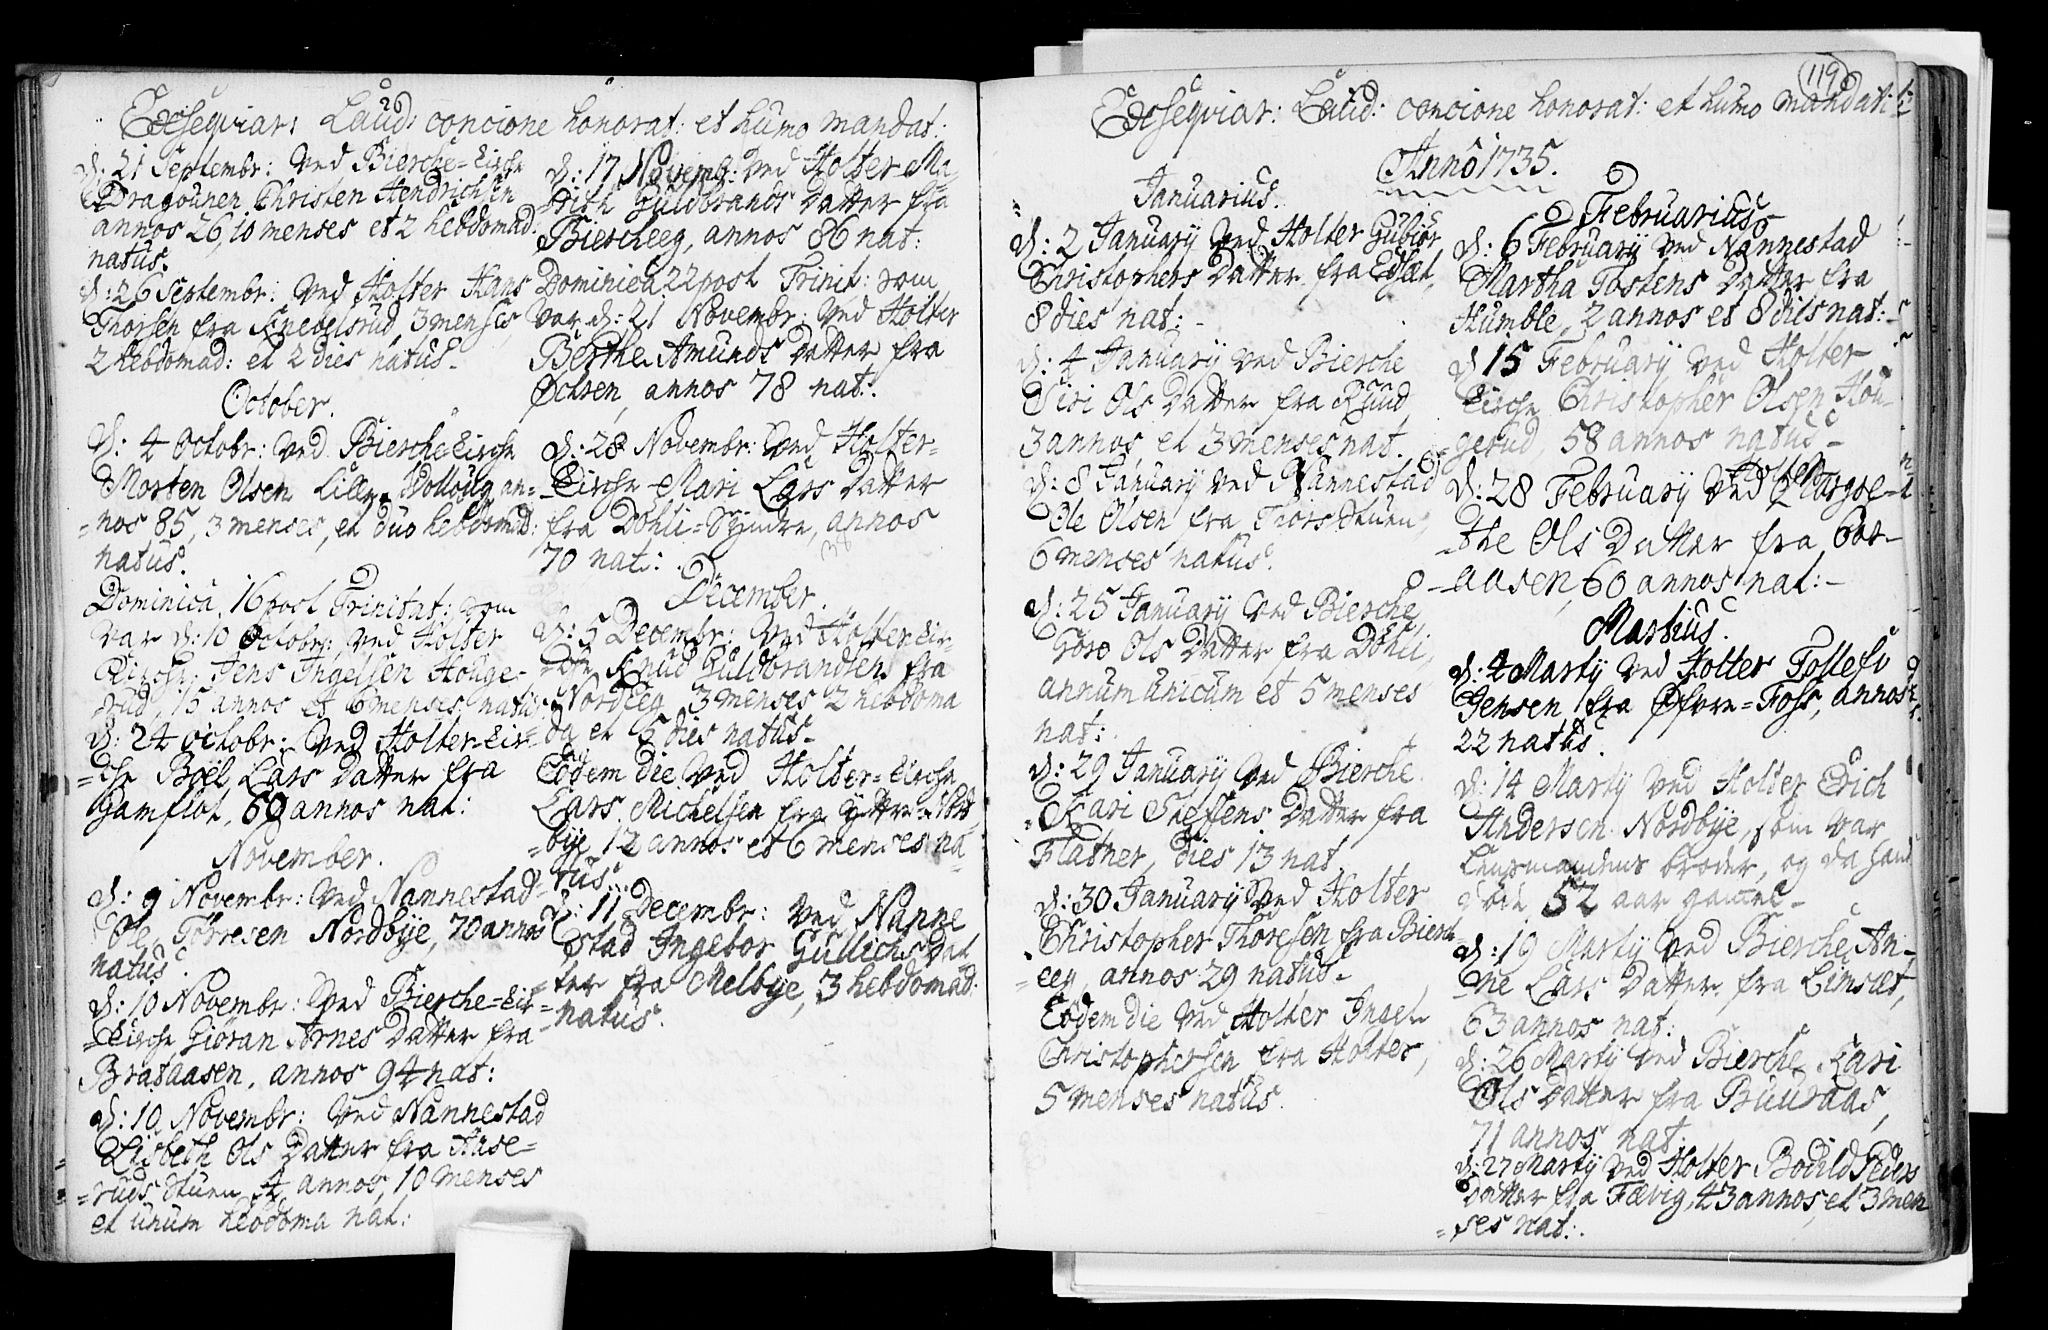 Exseqviar: Laud: concione honorat: et humo mandat:
d: 21 Septembr: ved Bierche-Kirche
Dragounen Christen Hendrichsen
annos 26, 10 menses et 2 hebdomad:
natus.
d: 26 Septembr: ved Holter Hans
Thorsen fra Knebelsrud, 3 menses,
2 hebdomad: et 2 dies natus.
October.
d: 4 Octobr: ved Bierche Kirche
Morten Olsen Lille an=
=nos 85, 3 menses, et duo hebdomad:
natus.
Dominica 16 post Trinitat: som
var d: 10 Octobr: ved Holter
Kirche Jens Ingelsen Houge-
rud, 15 annos et 6 menses natus.
d: 24 Octobr: ved Holter-Kir=
=che Boel Lars Datter fra
Gamflot, 60 annos nat:
November.
d: 9 Novembr: ved Nannestad
Ole Torresen Nordbye, 70 annos
natus.
d: 10 Novembr: ved Bierche-Kir=
=Kirche Giøran Arnes Datter fra
Brataasen, annos 94 nat:
d: 10 Novembr: ved Nannestad
Lisbeth Ols Datter fra Aase=
=ruds Stuen 4 annos, 10 menses
et unum hebdoma nat:
d: 17 Novemb: ved Holter Ma=
=rith Guldbrands Datter fra
Biercheeg, annos 86 nat:
Dominica 22 post Trinit: som
var d: 21 Novembr: ved Holter
Berthe Amunds Datter fra
Øchren, annos 78 nat:
d: 28 Novembr: ved Holter=
=Kirche Mari Lars Datter
fra Dohli-Syndre, annos
70 nat:
December.
d: 5 Decembr: ved Holter Kir=
=che Knud Guldbrandsen fra
Nordeeg 3 menses 2 hebdoma
da et 6 dies natus.
Eodem die ved Holter-Kirche
Lars Michelsen fra Yttre-Nord
=bye 12 annos et 6 menses na
=tus.
d: 11 Decembr: ved Nanne
stad Ingebor Gullichs Dat
=ter fra Melbye, 3 hebdomad:
=natus.
119
Exseqviar: Laud: concione honorat: et humo mandati
Anno 1735.
Januarius.
d: 2 January ved Holter Gubiør
Christophers Datter fra Edsæt,
8 dies nat:
d: 4 January ved Bierche
Siri Ols Datter fra Ruud
3 annos et 3 menses nat.
d: 8 January ved Nannestad
Ole Olsen fra Thors Stuen,
6 menses natus.
d: 25 January ved Bierche
Goro Ols Datter fra Dohli,
annum unicum et 5 menses
nat:
d: 29 January ved Bierche
Kari Steffens Datter fra
Flatner, dies 13 nat
d: 30 January ved Holter
Christopher Thoresen fra Bierch
=eeg, annos 29 natus.
Eodem die ved Holter Ingel
Christophersen fra Holter,
5 menses natus.
Februarius
d: 6 February ved Nannestad
Martha Tostens Datter fra
Humble, 2 annos et 8 dies nat:
d 15 February ved Holter
Kirche Christopher Olsen Hou-
gerud, 58 annos natus
d: 28 February ved Holter Margre=
=the Ols Datter fra
aasen, 60 annos nat:
Martius.
d: 4 Marty ved Holter Tollefs
Jensen fra Øfvre-Foss, annos
22 natus.
d: 14 Marty ved Holter Erich
Andersen Nordbye, som var
Lensmandens broder, og da hand
døde 52 aar gammel
d: 19 Marty ved Bierche An=
=ne Lars Datter fra Limsæt,
63 annos nat:
d: 26 Marty ved Bierche Kari
Ols Datter fra Buuraas,
71 annos nat.
d: 27 Marty ved Holter Bodild Peders
Datter fra Fævig, 43 annos et 3 men
=ses nat: